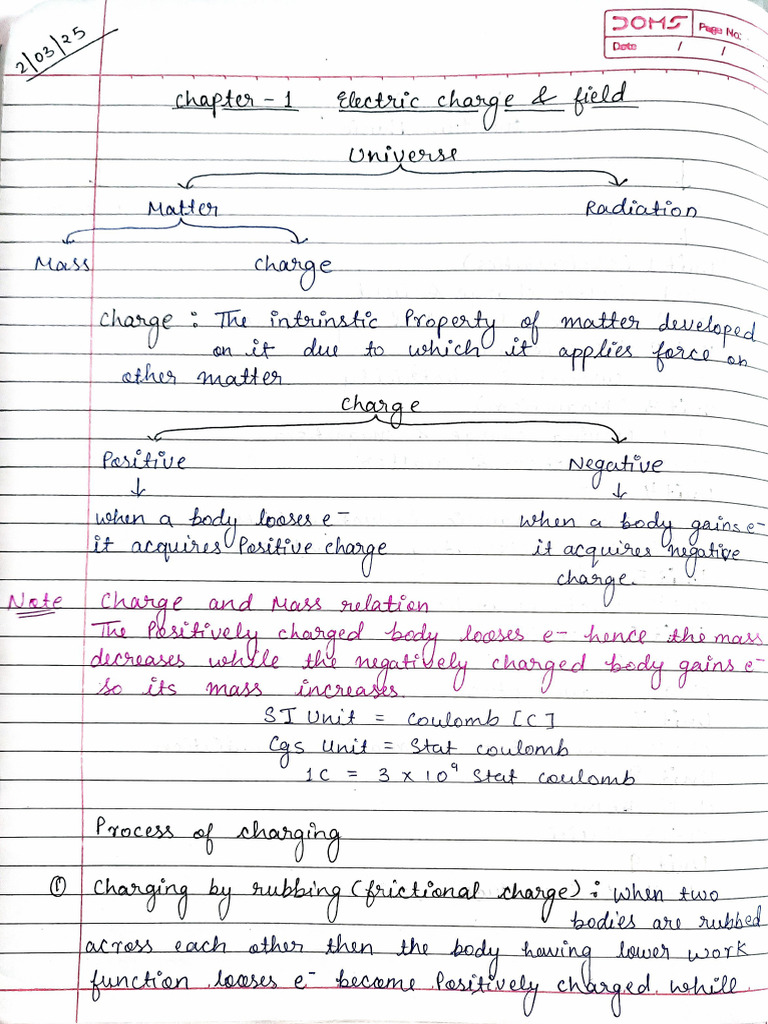 2/03/25
DOMS Page No:
Date / /
Chapter - 1 Electric charge & field
Universe
Matter Radiation
Mass Charge
Charge : The intrinstic Property of matter developed
on it due to which it applies force on
other matter
Charge
Positive Negative
↓ ↓
when a body looses e⁻ when a body gains e⁻
it acquires Positive charge it acquires negative
charge.
Note Charge and Mass relation
The Positively charged body looses e⁻ hence the mass
decreases while the negatively charged body gains e⁻
so its mass increases.
SI Unit = Coulomb [C]
Cgs Unit = Stat coulomb
1C = 3 × 10⁹ Stat coulomb
Process of charging
① Charging by rubbing (frictional charge) : when two
bodies are rubbed
across each other then the body having lower work
function looses e⁻ become Positively charged. whill